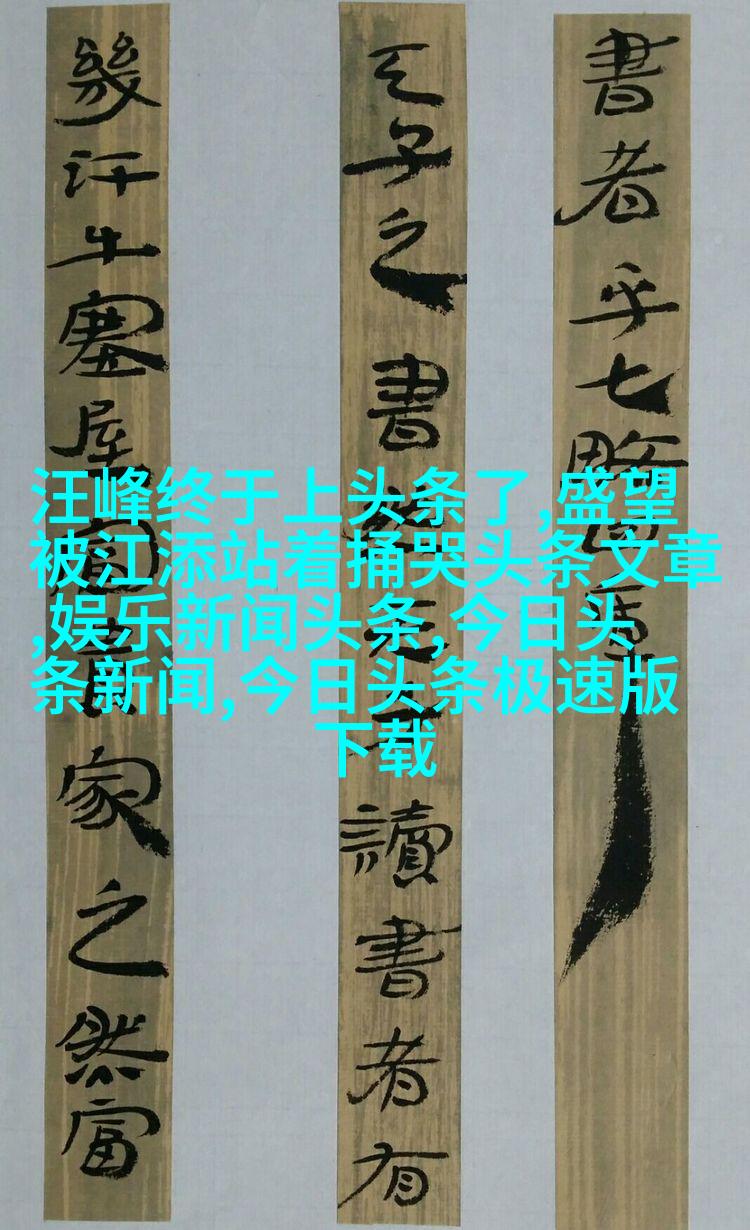 書者乎七略四庫
天子之書然天子讀書者有
幾汗牛塞屋富貴家之然富
汪峰终于上头条了,盛望
被江添站着捅哭头条文章
,娱乐新闻头条,今日头
条新闻,今日头条极速版
下载